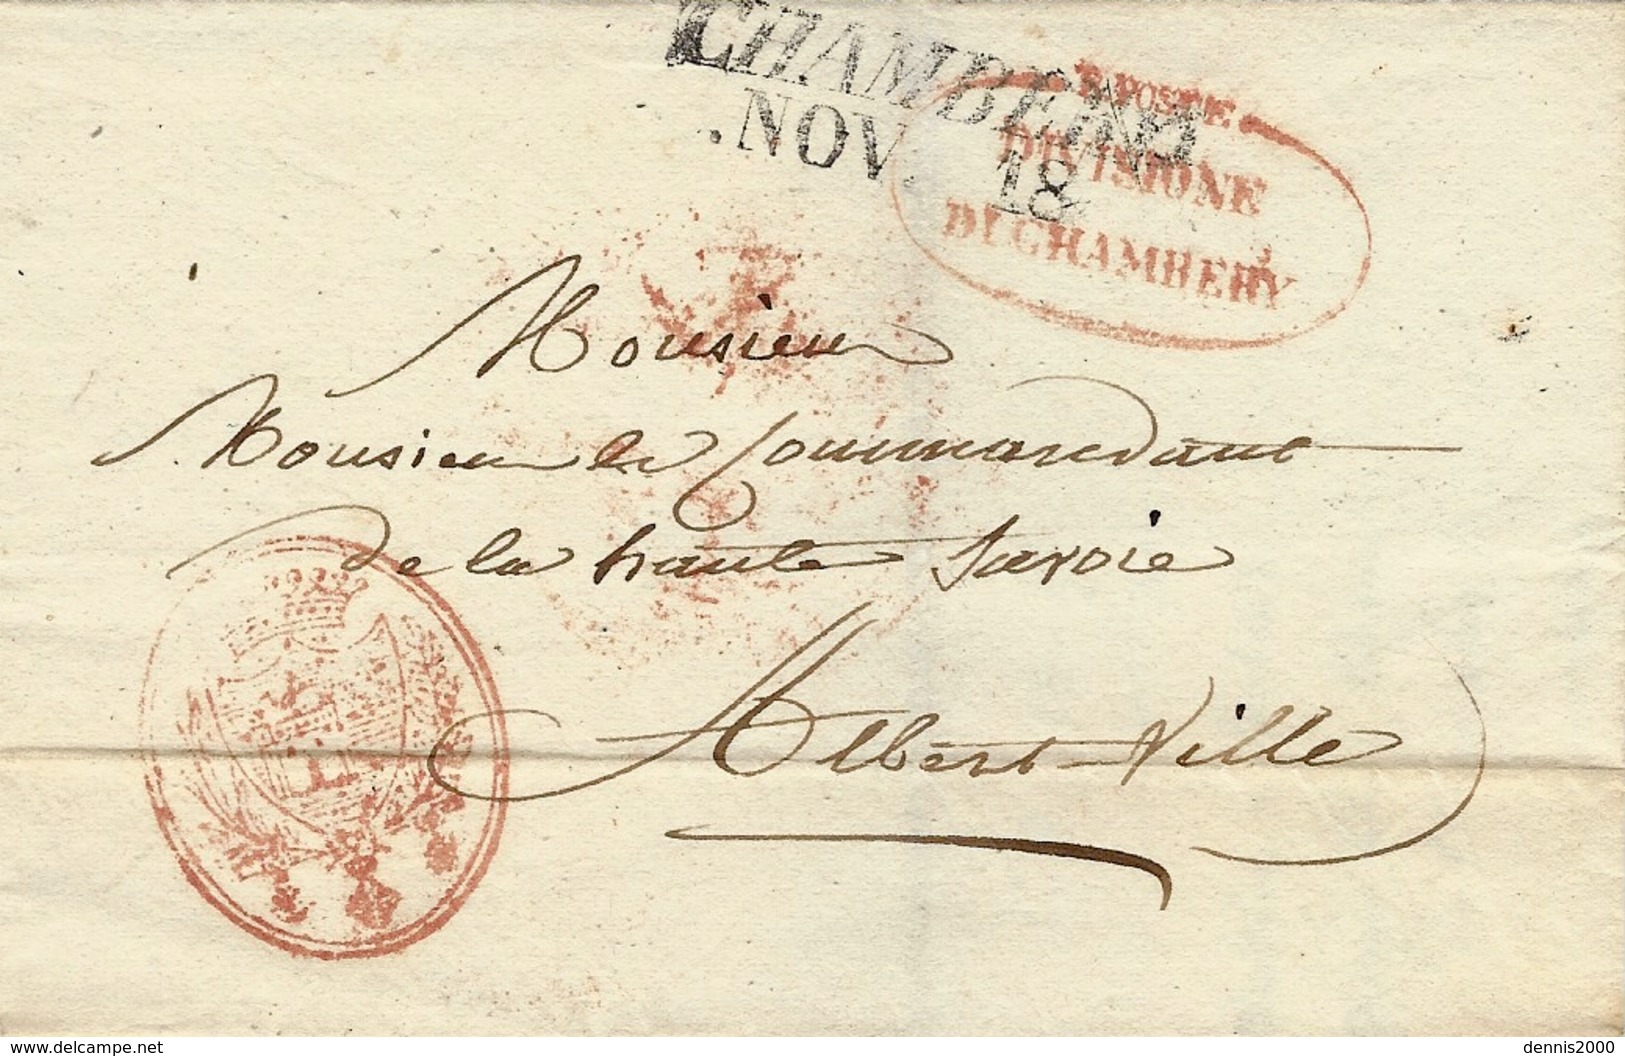 CHAMBERY
.NOV. 18
R. POSTE
DIVISIONE
DI CHAMBERY
Monsieur
Monsieur le Commandant
de la haute Savoie
Albert-Ville
www.delcampe.net
dennis2000